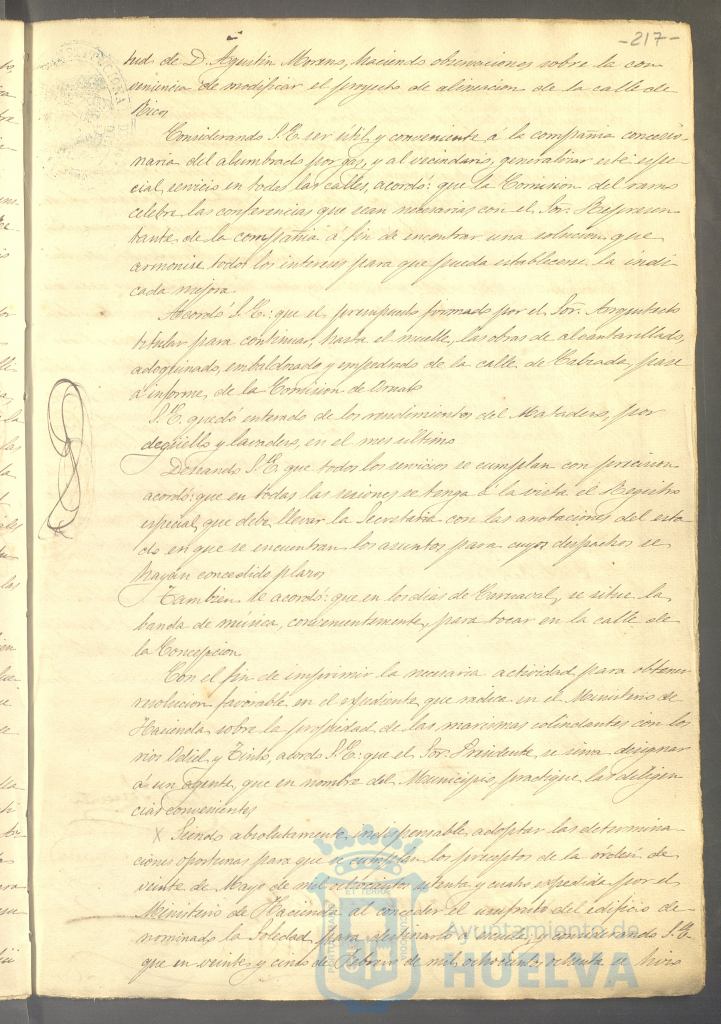 -217-
tud de D. Agustin Moreno, haciendo observaciones sobre la con
veniencia de modificar el proyecto de alineacion de la calle de
Rico
Considerando S.E. ser útil y conveniente á la compañia concesio
naria del alumbrado por gas, y al vecindario, generalizar este espe
cial servicio en todas las calles, acordó: que la Comision del ramo
celebre las conferencias que sean necesarias con el Sor. Represen
tante de la compañia á fin de encontrar una solucion que
armonise todos los intereses para que pueda establecerse la indi
cada mejora.
Acordó S.E: que el presupuesto formado por el Sor. Arquitecto
titular para continuar, hasta el muelle, las obras de alcantarillado,
adoquinado, embaldosado y empedrado de la calle de Calzada, pase
á informe de la Comision de Ornato
S.E. quedó enterado de los rendimientos del Matadero, por
degüello y lavadero, en el mes ultimo
Deseando S.E. que todos los servicios se cumplan con precision
acordó: que en todas las sesiones se tenga á la vista el Registro
especial que debe llevar la Secretaria con las anotaciones del esta
do en que se encuentran los asuntos para cuyos despachos se
hayan concedido plazos
Tambien se acordó: que en los dias de Carnaval, se situe la
banda de música, convenientemente, para tocar en la calle de
la Concepcion
Con el fin de imprimir la necesaria actividad para obtener
resolucion favorable en el expediente que radica en el Ministerio de
Hacienda sobre la propiedad de las marismas colindantes con los
rios Odiel y Tinto, acordó S.E: que el Sor. Presidente se sirva designar
á un agente, que en nombre del Municipio, practique las diligen
cias convenientes
X Siendo absolutamente indispensable adoptar las determina
ciones oportunas para que se cumplan los preceptos de la órden de
veinte de Mayo de mil ochocientos setenta y cuatro expedida por el
Ministerio de Hacienda al conceder el usufruto del edificio de
nominado la Soledad para destinarlo á escuela, y considerando S.E.
que en veinte y cinco de Febrero de mil ochocientos ochenta se hizo
Ayuntamiento de
HUELVA